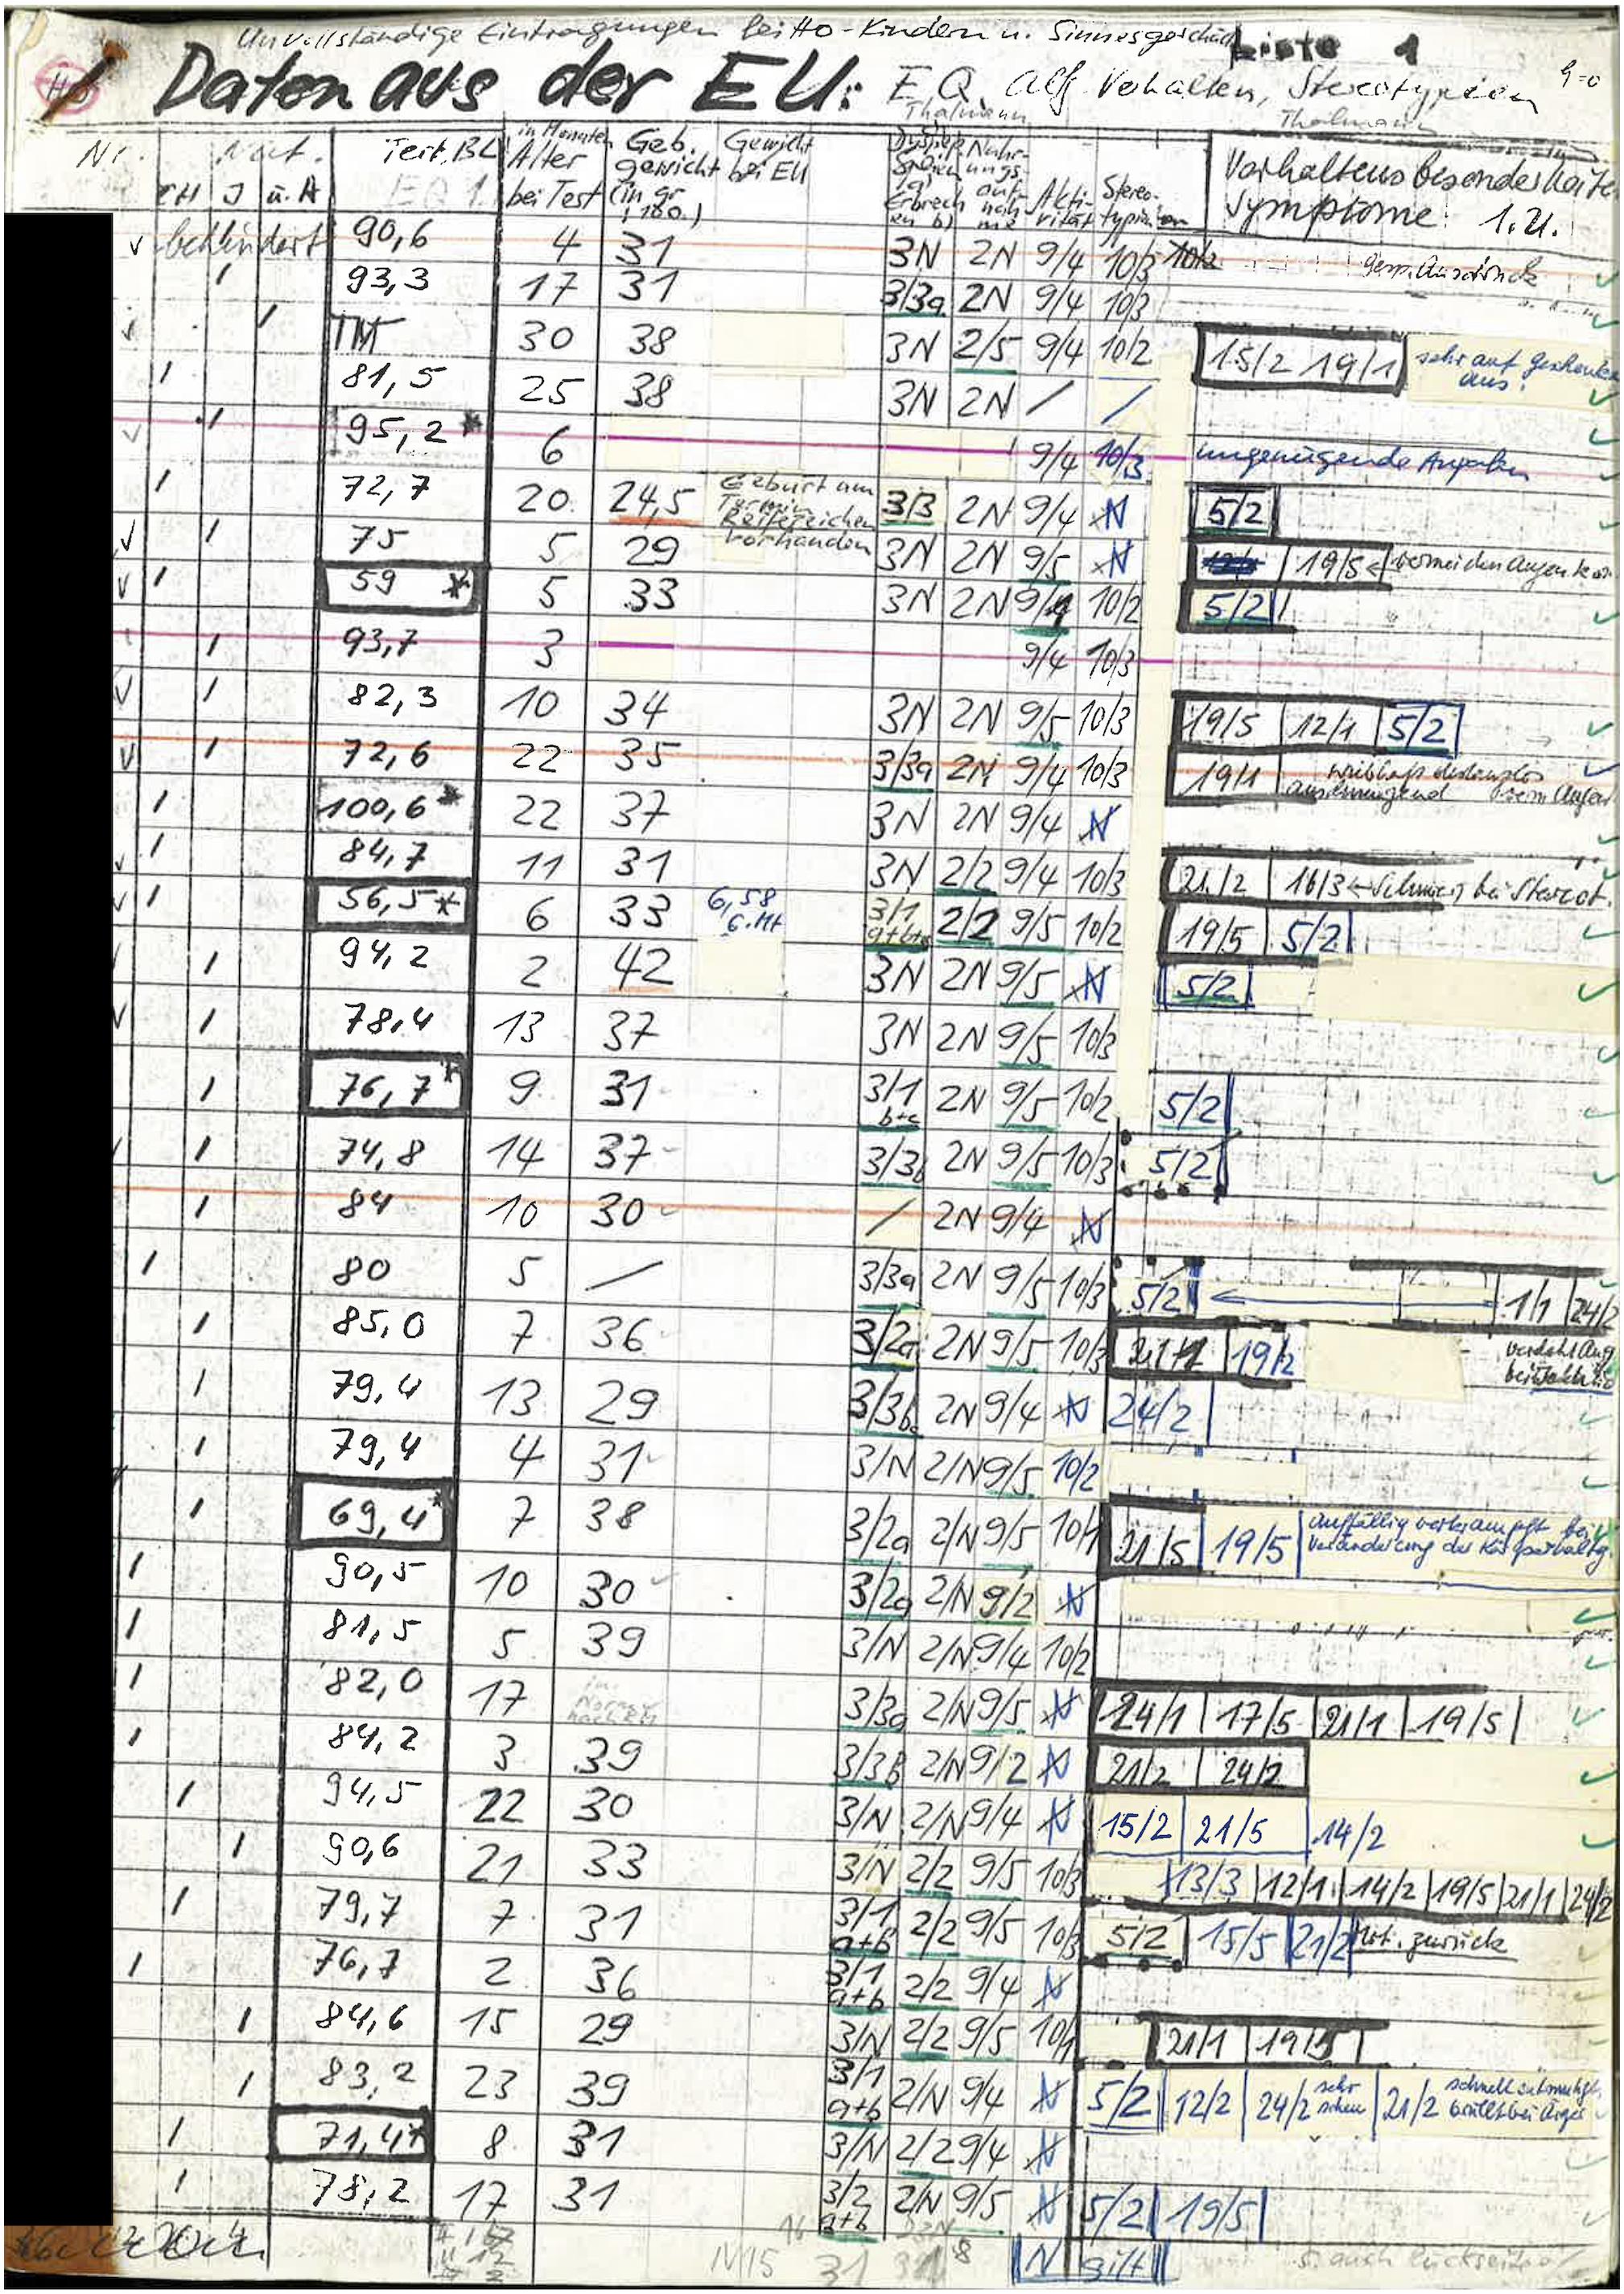 Unvollständige Eintragungen bei Ho-Kindern u. Sinnesgeschäd
Liste 1
Daten aus der EU: EQ, Alf Verhalten, Stereotypien
Thalmann Thalmann
Nr. Test, BL in Monaten Alter bei Test Geb. gewicht (in gr :100.) Gewicht bei EU Nahrungsaufnahme Aktivität Stereotypien Verhaltensbesonderheiten Symptome 1.U.
CH J u. A EQ 1.
behindert 90,6 4 31 3N 2N 9/4 10/3
93,3 17 31 3/3a 2N 9/4 10/3
30 38 3N 2/5 9/4 10/2 15/2 19/1 sehr auf Geschenke aus!
81,5 25 38 3N 2N / /
95,2* 6 9/4 10/3 ungenügende Angaben
72,7 20 24,5 Geburt am Termin Reifezeichen vorhanden 3/3 2N 9/4 N 5/2
75 5 29 3N 2N 9/5 N 19/5 ← vermeiden Augenkon
59 * 5 33 3N 2N 9/4 10/2 5/2
93,7 3 9/4 10/3
82,3 10 34 3N 2N 9/5 10/3 19/5 12/1 5/2
72,6 22 35 3/3a 2N 9/4 10/3 19/1
100,6* 22 37 3N 2N 9/4 N
84,7 11 31 3N 2/2 9/4 10/3 21/2 16/3 ← bei Stereot.
56,5* 6 33 6,58 6.Mt 3/1 2/2 9/5 10/2 19/5 5/2
94,2 2 42 3N 2N 9/5 N 5/2
78,4 13 37 3N 2N 9/5 10/3
76,7* 9 31 3/1 b+c 2N 9/5 10/2 5/2
74,8 14 37 3/3b 2N 9/5 10/3 5/2
84 10 30 / 2N 9/4 N
80 5 / 3/3a 2N 9/5 10/3 5/2 ← 1/1 24/2
85,0 7 36 3/2a 2N 9/5 10/3 19/2 verdreht Aug
79,4 13 29 3/3b 2N 9/4 N 24/2
79,4 4 31 3/N 2/N 9/5 10/2
69,4* 7 38 3/2a 2/N 9/5 10/1 21/5 19/5 auffällig verkrampft bei Veränderung der Körperhaltg.
90,5 10 30 3/2a 2/N 9/2 N
81,5 5 39 3/N 2/N 9/4 10/2
82,0 17 3/3a 2/N 9/5 N 24/1 17/5 21/1 19/5
84,2 3 39 3/3B 2/N 9/2 N 21/2 24/2
94,5 22 30 3/N 2/N 9/4 N 15/2 21/5 14/2
90,6 21 33 3/N 2/2 9/5 10/3 13/3 12/1 14/2 19/5 21/1 24/2
79,7 7 31 3/1 a+b 2/2 9/5 10/3 5/2 15/5 21/2 zurück
76,7 2 36 3/1 a+b 2/2 9/4 N
84,6 15 29 3/N 2/2 9/5 10/1 21/1 19/5
83,2 23 39 3/1 a+b 2/N 9/4 N 5/2 12/2 24/2 sehr scheu 21/2 schnell entmutigt, brüllt bei Ärger
71,4* 8 31 3/N 2/2 9/4 N
78,2 17 31 3/2 a+b 2/N 9/5 N 5/2 19/5
N gilt s. auch Rückseite